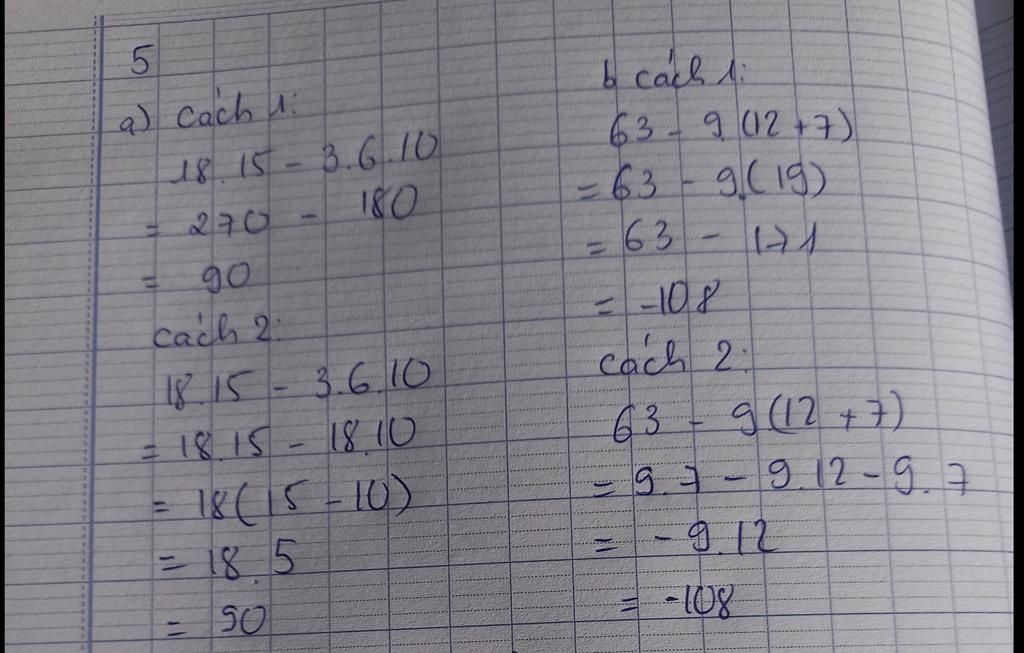 5
a) Cách 1:
18.15 - 3.6.10
= 270 - 180
= 90
Cách 2:
18.15 - 3.6.10
= 18.15 - 18.10
= 18(15 - 10)
= 18.5
= 90
b cách 1:
63 - 9.(12 + 7)
= 63 - 9.(19)
= 63 - 171
= -108
Cách 2:
63 - 9(12 + 7)
= 9.7 - 9.12 - 9.7
= - 9.12
= -108